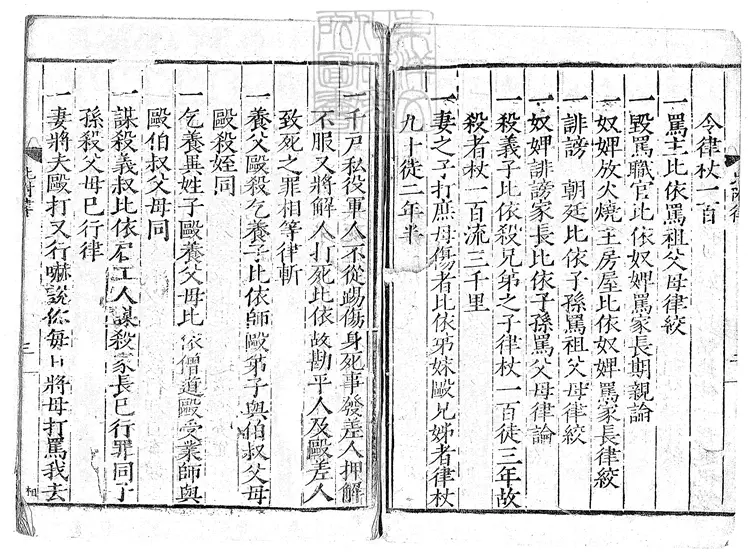 令律杖一百
一罵主比依罵祖父母律絞
一毀罵職官比依奴婢罵家長期親論
一奴婢放火燒主房屋比依奴婢罵家長律絞
一誹謗 朝廷比依子孫罵祖父母律絞
一奴婢誹謗家長比依子孫罵父母律論
一殺義子比依殺兄弟之子律杖一百徒三年故
殺者杖一百流三千里
一妻之子打庶母傷者比依弟妹毆兄姊者律杖
九十徒二年半
一千戶私役軍人不從踢傷身死事發差人押解
不服又將解人打死比依故勘平人及毆差人
致死之罪相等律斬
一養父毆殺乞養子比依師毆弟子與伯叔父母
毆殺姪同
一乞養異姓子毆養父母比依僧道毆受業師與
毆伯叔父母同
一謀殺義叔比依雇工人謀殺家長已行罪同子
孫殺父母已行律
一妻將夫毆打又行嚇說你每日將母打罵我去
三